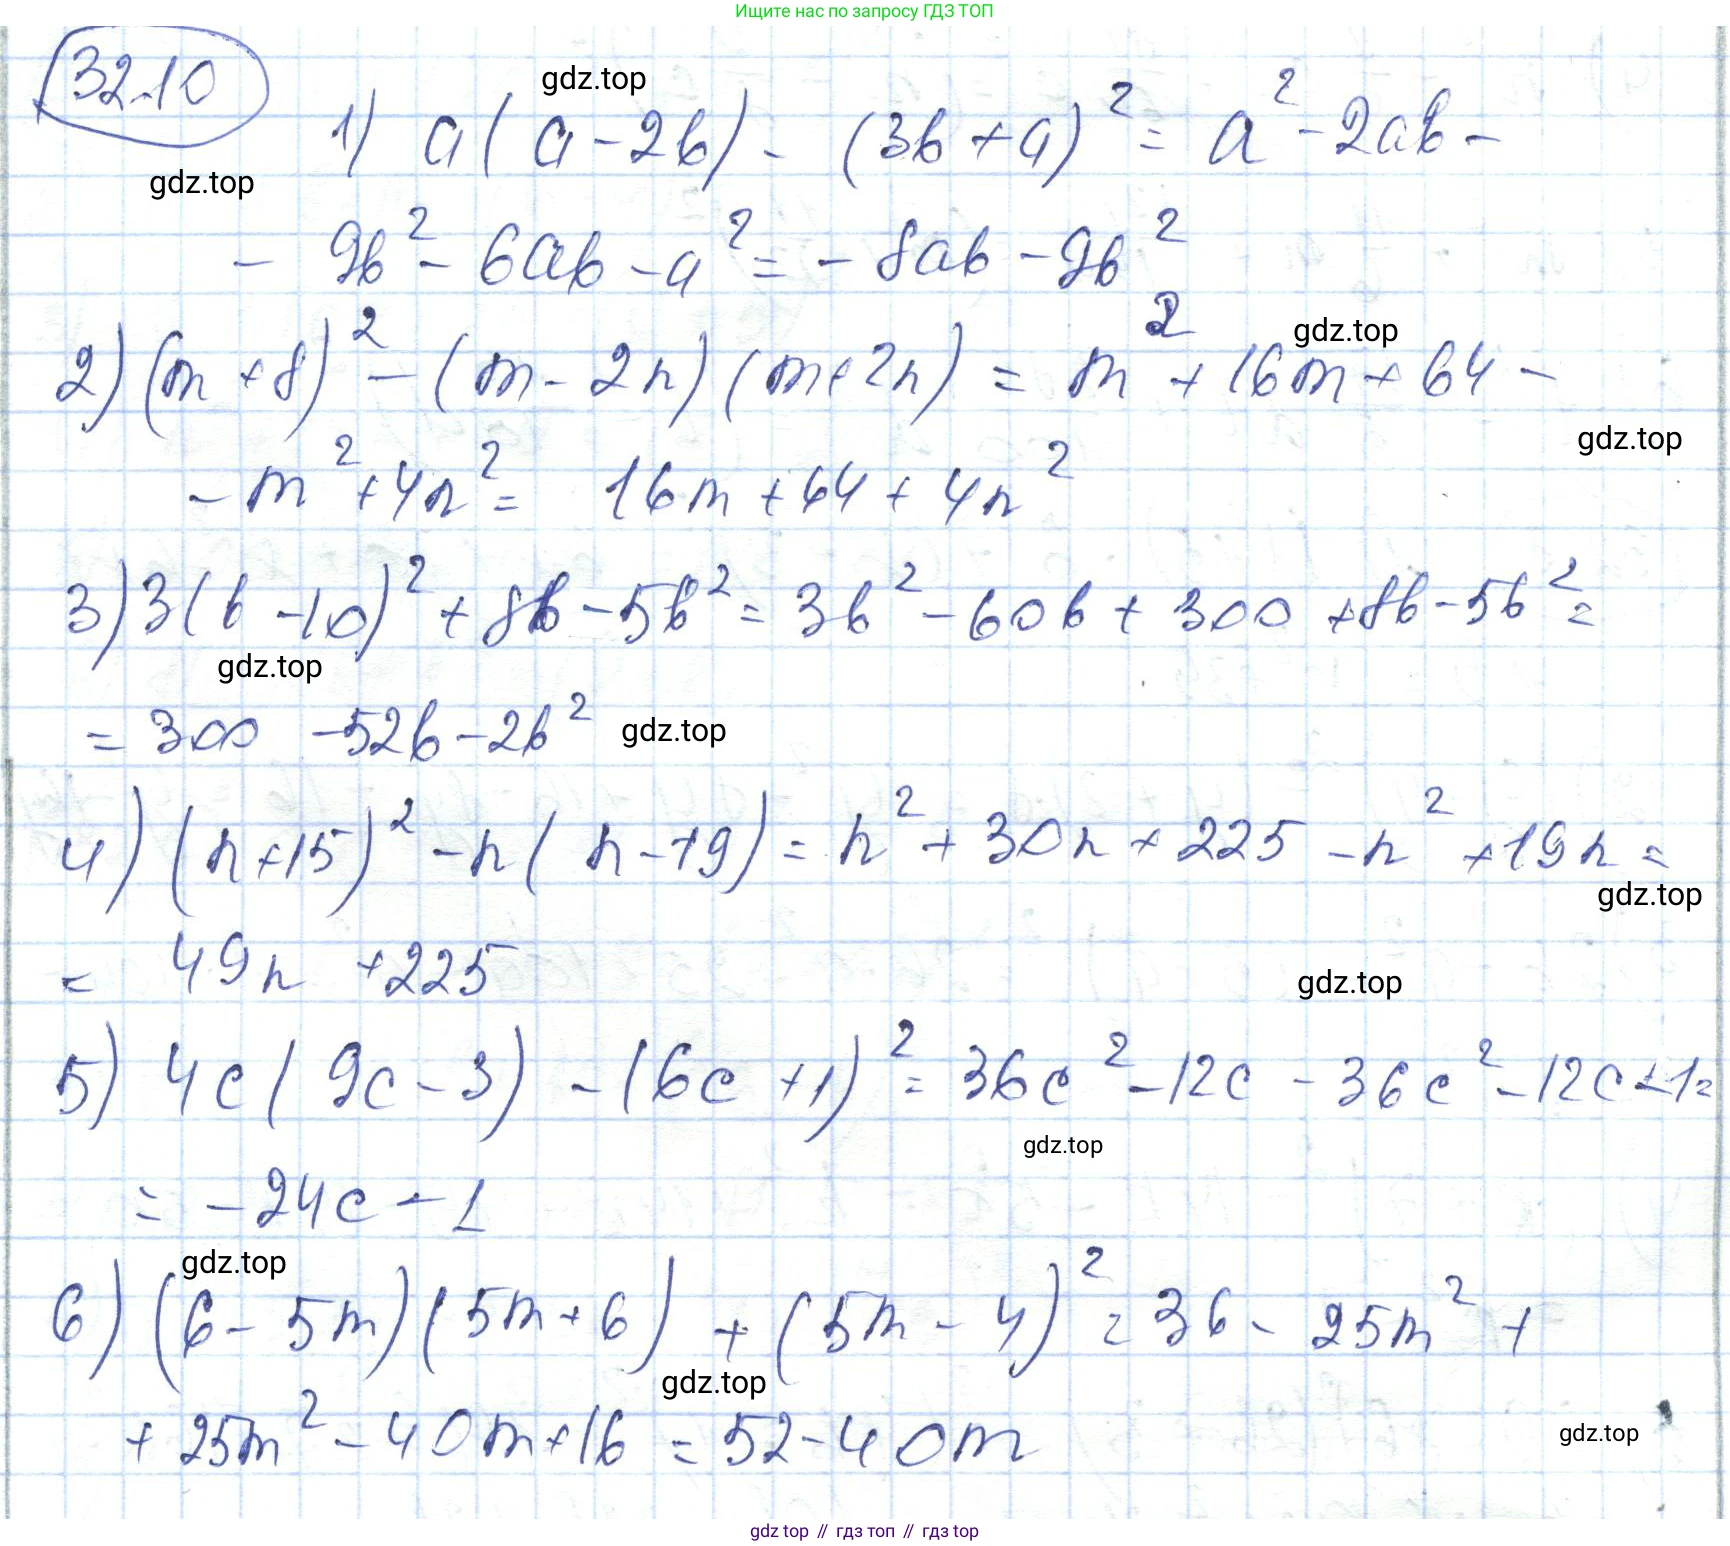 Ищите нас по запросу ГДЗ ТОП
32.10
gdz.top
1) a(a - 2b) - (3b + a)² = a² - 2ab -
gdz.top
- 9b² - 6ab - a² = - 8ab - 9b²
gdz.top
2) (m + 8)² - (m - 2n)(m + 2n) = m² + 16m + 64 -
gdz.top
- m² + 4n² = 16m + 64 + 4n²
3) 3(b - 10)² + 8b - 5b² = 3b² - 60b + 300 + 8b - 5b² =
gdz.top
= 300 - 52b - 2b² gdz.top
4) (n + 15)² - n(n - 19) = n² + 30n + 225 - n² + 19n =
gdz.top
= 49n + 225
gdz.top
5) 4c(9c - 3) - (6c + 1)² = 36c² - 12c - 36c² - 12c - 1 =
gdz.top
= - 24c - 1
gdz.top
6) (6 - 5m)(5m + 6) + (5m - 4)² = 36 - 25m² +
gdz.top
+ 25m² - 40m + 16 = 52 - 40m
gdz.top
gdz top // гдз топ // гдз top